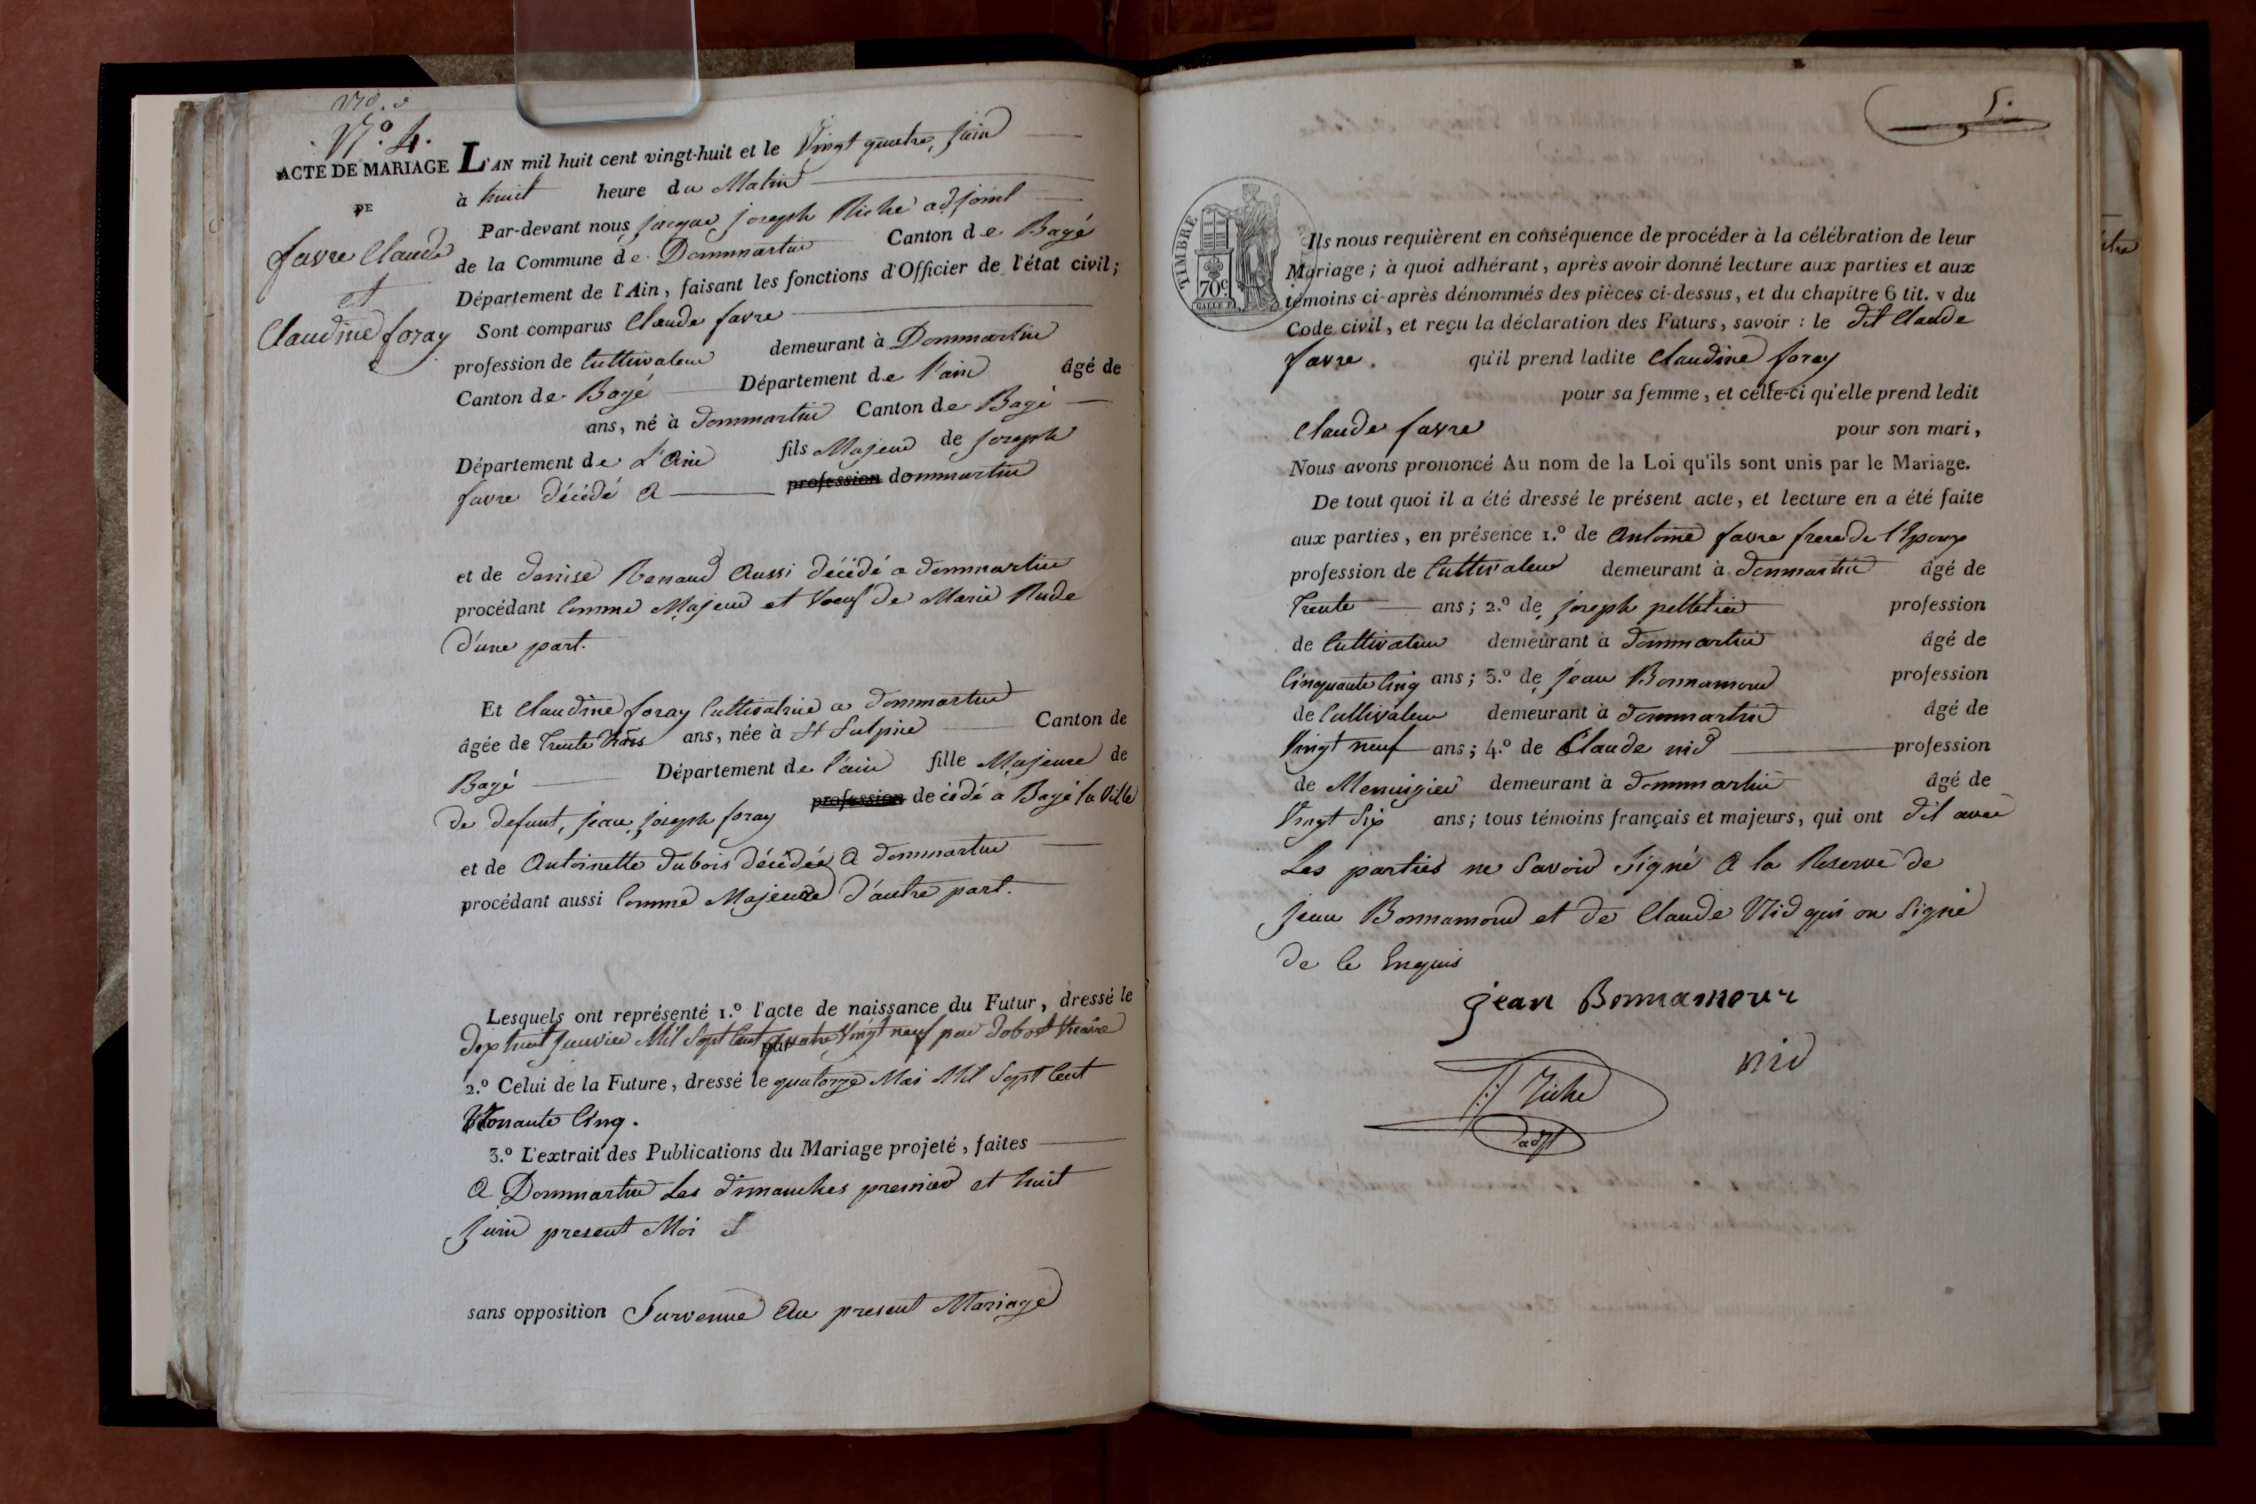 N.o 4.
ACTE DE MARIAGE
DE
favre Claude
et
Claudine foray
L'AN mil huit cent vingt-huit et le Vingt quatre, Juin
à huit heure du Matin
Par-devant nous jacque joseph Niche adjoint
de la Commune de Dommartin Canton de Bagé
Département de l'Ain, faisant les fonctions d'Officier de l'état civil;
Sont comparus Claude favre
profession de Cultivateur demeurant à Dommartin
Canton de Bagé Département de l'ain âgé de
ans, né à dommartin Canton de Bagé
Département de L'Ain fils Majeur de joseph
favre décédé a profession dommartin
et de denise Renaud Aussi décédé a dommartin
procédant Comme Majeur et Voeuf de Marie Rude
d'une part.
Et Claudine foray Cultivatrice a dommartin
âgée de Trente trois ans, née à St Sulpice Canton de
Bagé Département de l'ain fille Majeure de
de defunt, jean, joseph foray profession decédé a Bagé la Ville
et de Antoinette dubois décédée a dommartin
procédant aussi Comme Majeure d'autre part.
Lesquels ont représenté 1.o l'acte de naissance du Futur, dressé le
dix huit Janvier Mil Sept Cent quatre Vingt neuf par dobost Vicaire
par
2.o Celui de la Future, dressé le quatorze Mai Mil Sept Cent
Nonante Cinq.
3.o L'extrait des Publications du Mariage projeté, faites
A Dommartin Les dimanches premier et huit
Juin present Moi
sans opposition Survenue Au present Mariage
5.
TIMBRE
70c
Ils nous requièrent en conséquence de procéder à la célébration de leur
Mariage; à quoi adhérant, après avoir donné lecture aux parties et aux
témoins ci-après dénommés des pièces ci-dessus, et du chapitre 6 tit. v du
Code civil, et reçu la déclaration des Futurs, savoir : le dit Claude
favre. qu'il prend ladite Claudine foray
pour sa femme, et celle-ci qu'elle prend ledit
Claude favre pour son mari,
Nous avons prononcé Au nom de la Loi qu'ils sont unis par le Mariage.
De tout quoi il a été dressé le présent acte, et lecture en a été faite
aux parties, en présence 1.o de Antoine favre frere de l'Epoux
profession de Cultivateur demeurant à dommartin âgé de
Trente ans; 2.o de joseph pelletier profession
de Cultivateur demeurant à dommartin âgé de
Cinquante Cinq ans; 3.o de jean Bonnamour profession
de Cultivateur demeurant à dommartin âgé de
Vingt neuf ans; 4.o de Claude nid profession
de Menuisier demeurant à dommartin âgé de
Vingt Six ans; tous témoins français et majeurs, qui ont dit avec
Les parties ne Savoir Signé A la Reserve de
jean Bonnamour et de Claude Nid qui on Signé
de Ce Enquis
jean Bonnamour
nid
Niche
adjt